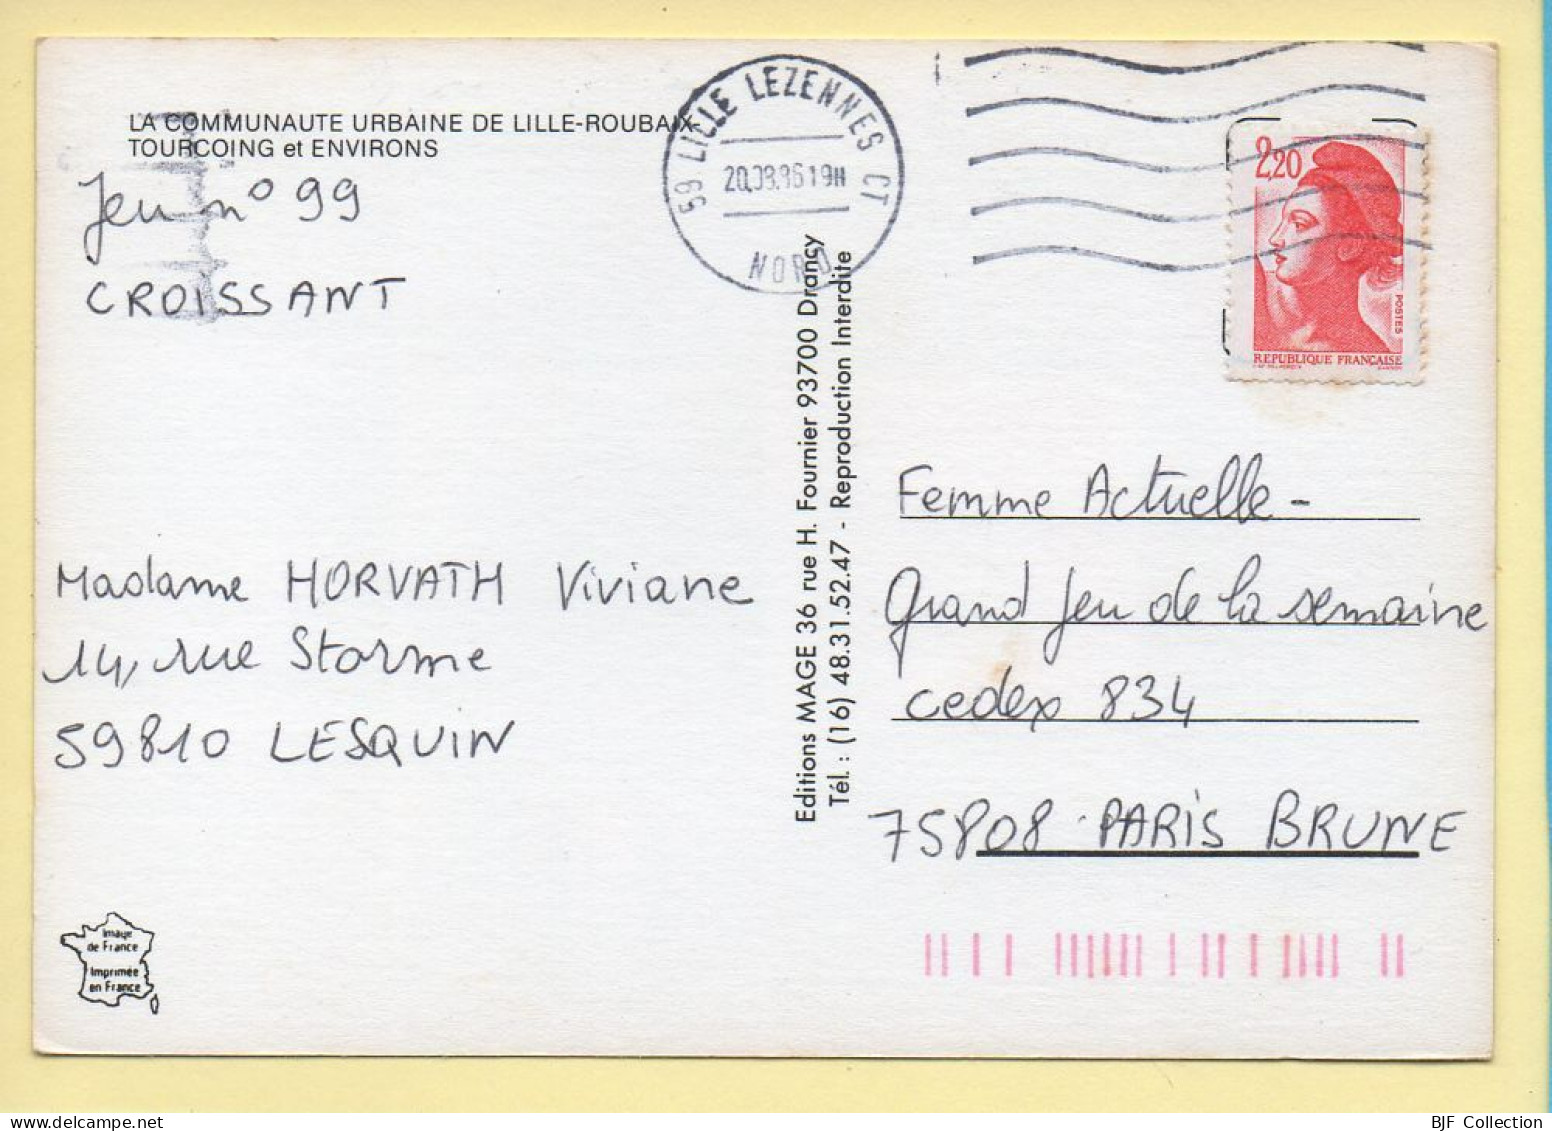 LA COMMUNAUTE URBAINE DE LILLE-ROUBAIX
TOURCOING et ENVIRONS
Jeu n° 99
CROISSANT
Madame HORVATH Viviane
14, rue Storme
59810 LESQUIN
Image
de France
Imprimée
en France
59 LILLE LEZENNES CT
20.08.86 19H
NORD
Editions MAGE 36 rue H. Fournier 93700 Drancy
Tél. : (16) 48.31.52.47 - Reproduction Interdite
2,20
POSTES
REPUBLIQUE FRANÇAISE
Femme Actuelle -
Grand Jeu de la semaine
cedex 834
75808 PARIS BRUNE
BJF Collection